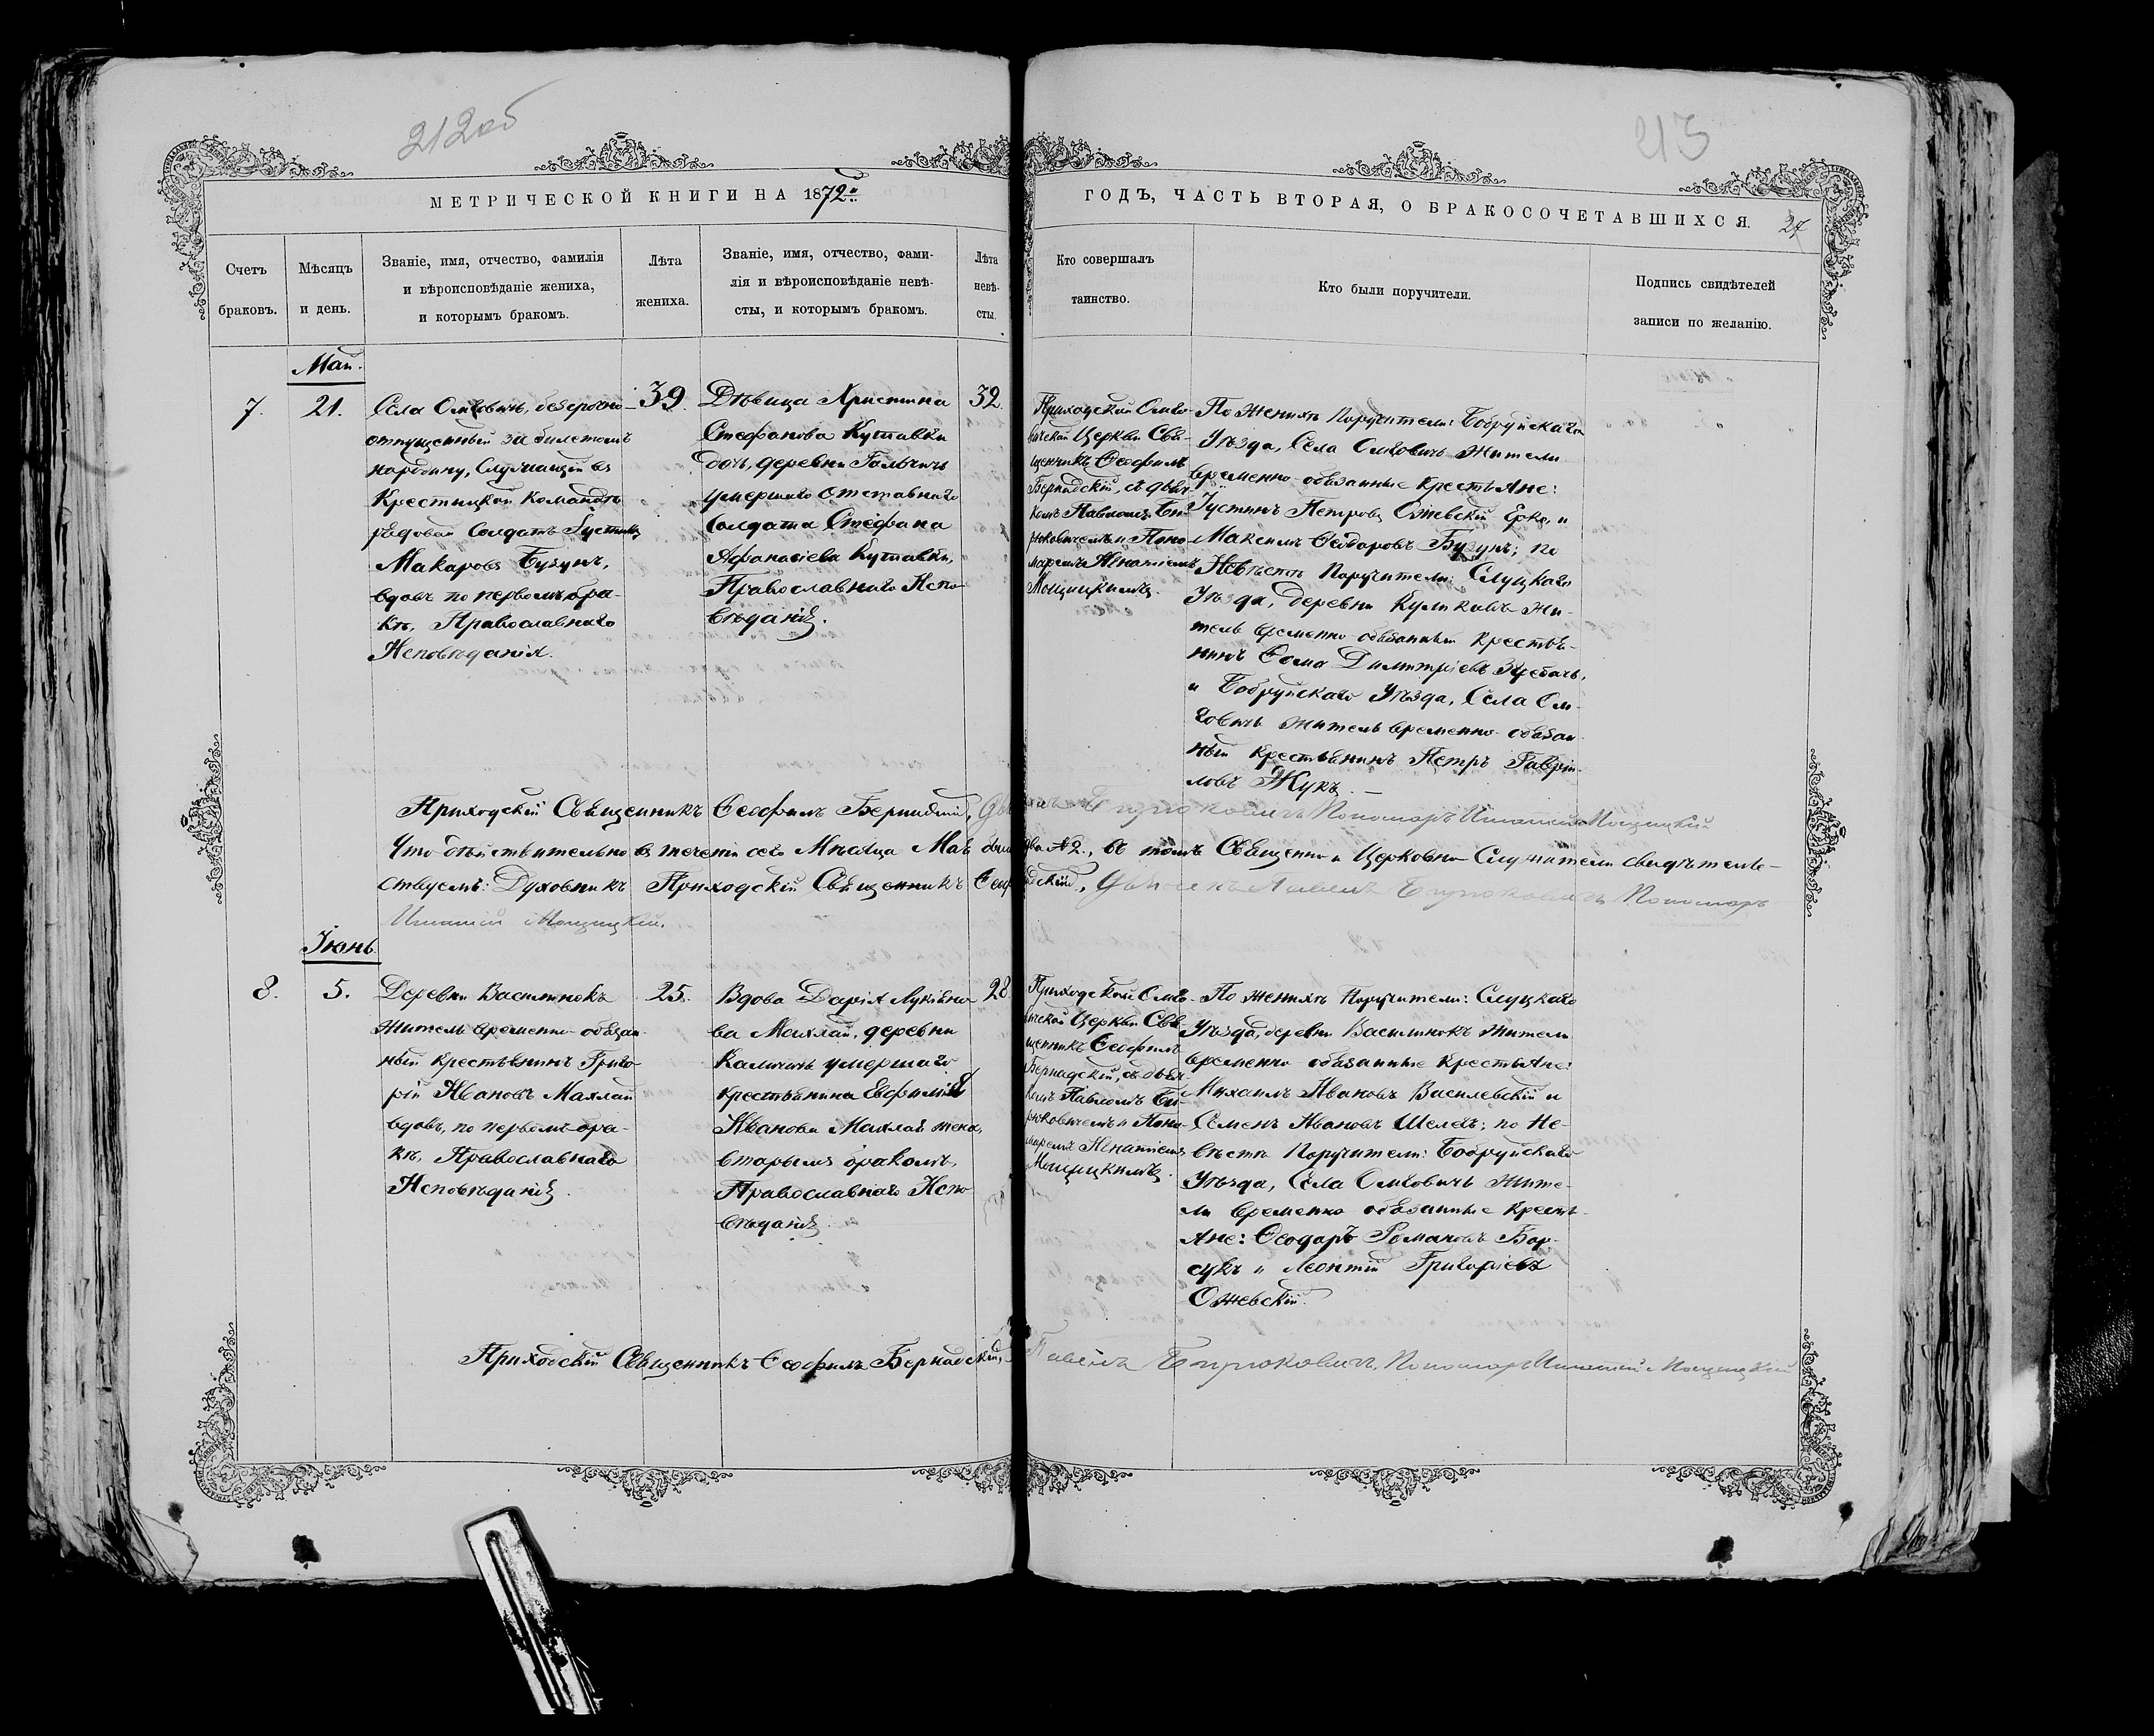 212 об
213
МЕТРИЧЕСКОЙ КНИГИ НА 1872й
ГОДЪ, ЧАСТЬ ВТОРАЯ, О БРАКОСОЧЕТАВШИХСЯ.
27
Счетъ
браковъ.
Мѣсяцъ
и день.
Званіе, имя, отчество, фамилія
и вѣроисповѣданіе жениха,
и которымъ бракомъ.
Лѣта
жениха.
Званіе, имя, отчество, фами-
лія и вѣроисповѣданіе невѣ-
сты, и которымъ бракомъ.
Лѣта
невѣ-
сты.
Кто совершалъ
таинство.
Кто были поручители.
Подпись свидѣтелей
записи по желанію.
Май.
7.
21.
Села Омговичъ, безсрочно-
отпущенный за билетомъ
народину, Служащій въ
командѣ
рядовой Солдатъ Густинъ
Макаровъ Бузунъ,
вдовъ по первомъ бра-
кѣ, Православнаго
Исповѣданія.
39.
Дѣвица Христина
Стефанова Кутавки
дочь, деревни
умершаго отставнаго
Солдата Стефана
Афанасіева Кутавки,
Православнаго Испо-
вѣданія.
32.
Приходской Омго-
вичской Церкви Свя-
щенникъ Ѳеофилъ
Бернадскій, съ дьяч-
комъ Павломъ Би-
рюковичемъ и Поно-
маремъ Игнатіемъ
Мощицкимъ.
По Женихѣ Поручители: Бобруйскаго
Уѣзда, Села Омговичъ Жители
временно-обязанные Крестьяне:
Густинъ Петровъ и
Максимъ Ѳеодоровъ Бузунъ; по
Невѣстѣ Поручители: Слуцкаго
Уѣзда, деревни Куликовъ жи-
тель временно обязанный Крестья-
нинъ Ѳома Димитріевъ
и Бобруйскаго Уѣзда, Села Ом-
говичъ житель временно-обязан-
ный крестьянинъ Петръ Гаврiи-
ловъ Жукъ. —
Приходскій Священникъ Ѳеофилъ Бернадскій, Бирюковичъ Пономаръ Игнатій Мощицкій
Что дѣйствительно въ теченіи сего Мѣсяца Мая было два № 2., въ томъ Священно и Церковно-Служители свидѣтель-
ствуемъ: Духовникъ Приходскій Священникъ Бернадскій, Дьячекъ Павелъ Бирюковичъ Пономаръ
Игнатій Мощицкій.
Іюнь
8.
5.
Деревни Василинокъ
житель временно-обязан-
ный крестьянинъ Григо-
рій Ивановъ Махлай
вдовъ, по первомъ бра-
кѣ, Православнаго
Исповѣданія.
25.
Вдова Дарія Лукіяно-
ва Махлай, деревни
Калитичъ умершаго
крестьянина Евфимія
Иванова Махлая жена,
вторымъ бракомъ,
Православнаго Испо-
вѣданія.
28.
Приходской Омго-
вичской Церкви Свя-
щенникъ Ѳеофилъ
Бернадскій, съ дьяч-
комъ Павломъ Би-
рюковичемъ и Поно-
маремъ Игнатіемъ
Мощицкимъ.
По женихѣ Поручители: Слуцкаго
Уѣзда, деревни Василинокъ жители
временно обязанные Крестьяне:
Михаилъ Ивановъ Василевскій и
Семенъ Ивановъ Шелегъ; по Не-
вѣстѣ Поручители: Бобруйскаго
Уѣзда, Села Омговичъ жите-
ли временно обязанные Кресть-
яне: Ѳеодоръ Романовъ Бар-
сукъ и Леонтій Григоріевъ
Ожевскій.
Приходскій Священникъ Ѳеофилъ Бернадскій, Павелъ Бирюковичъ, Пономаръ Игнатій Мощицкій